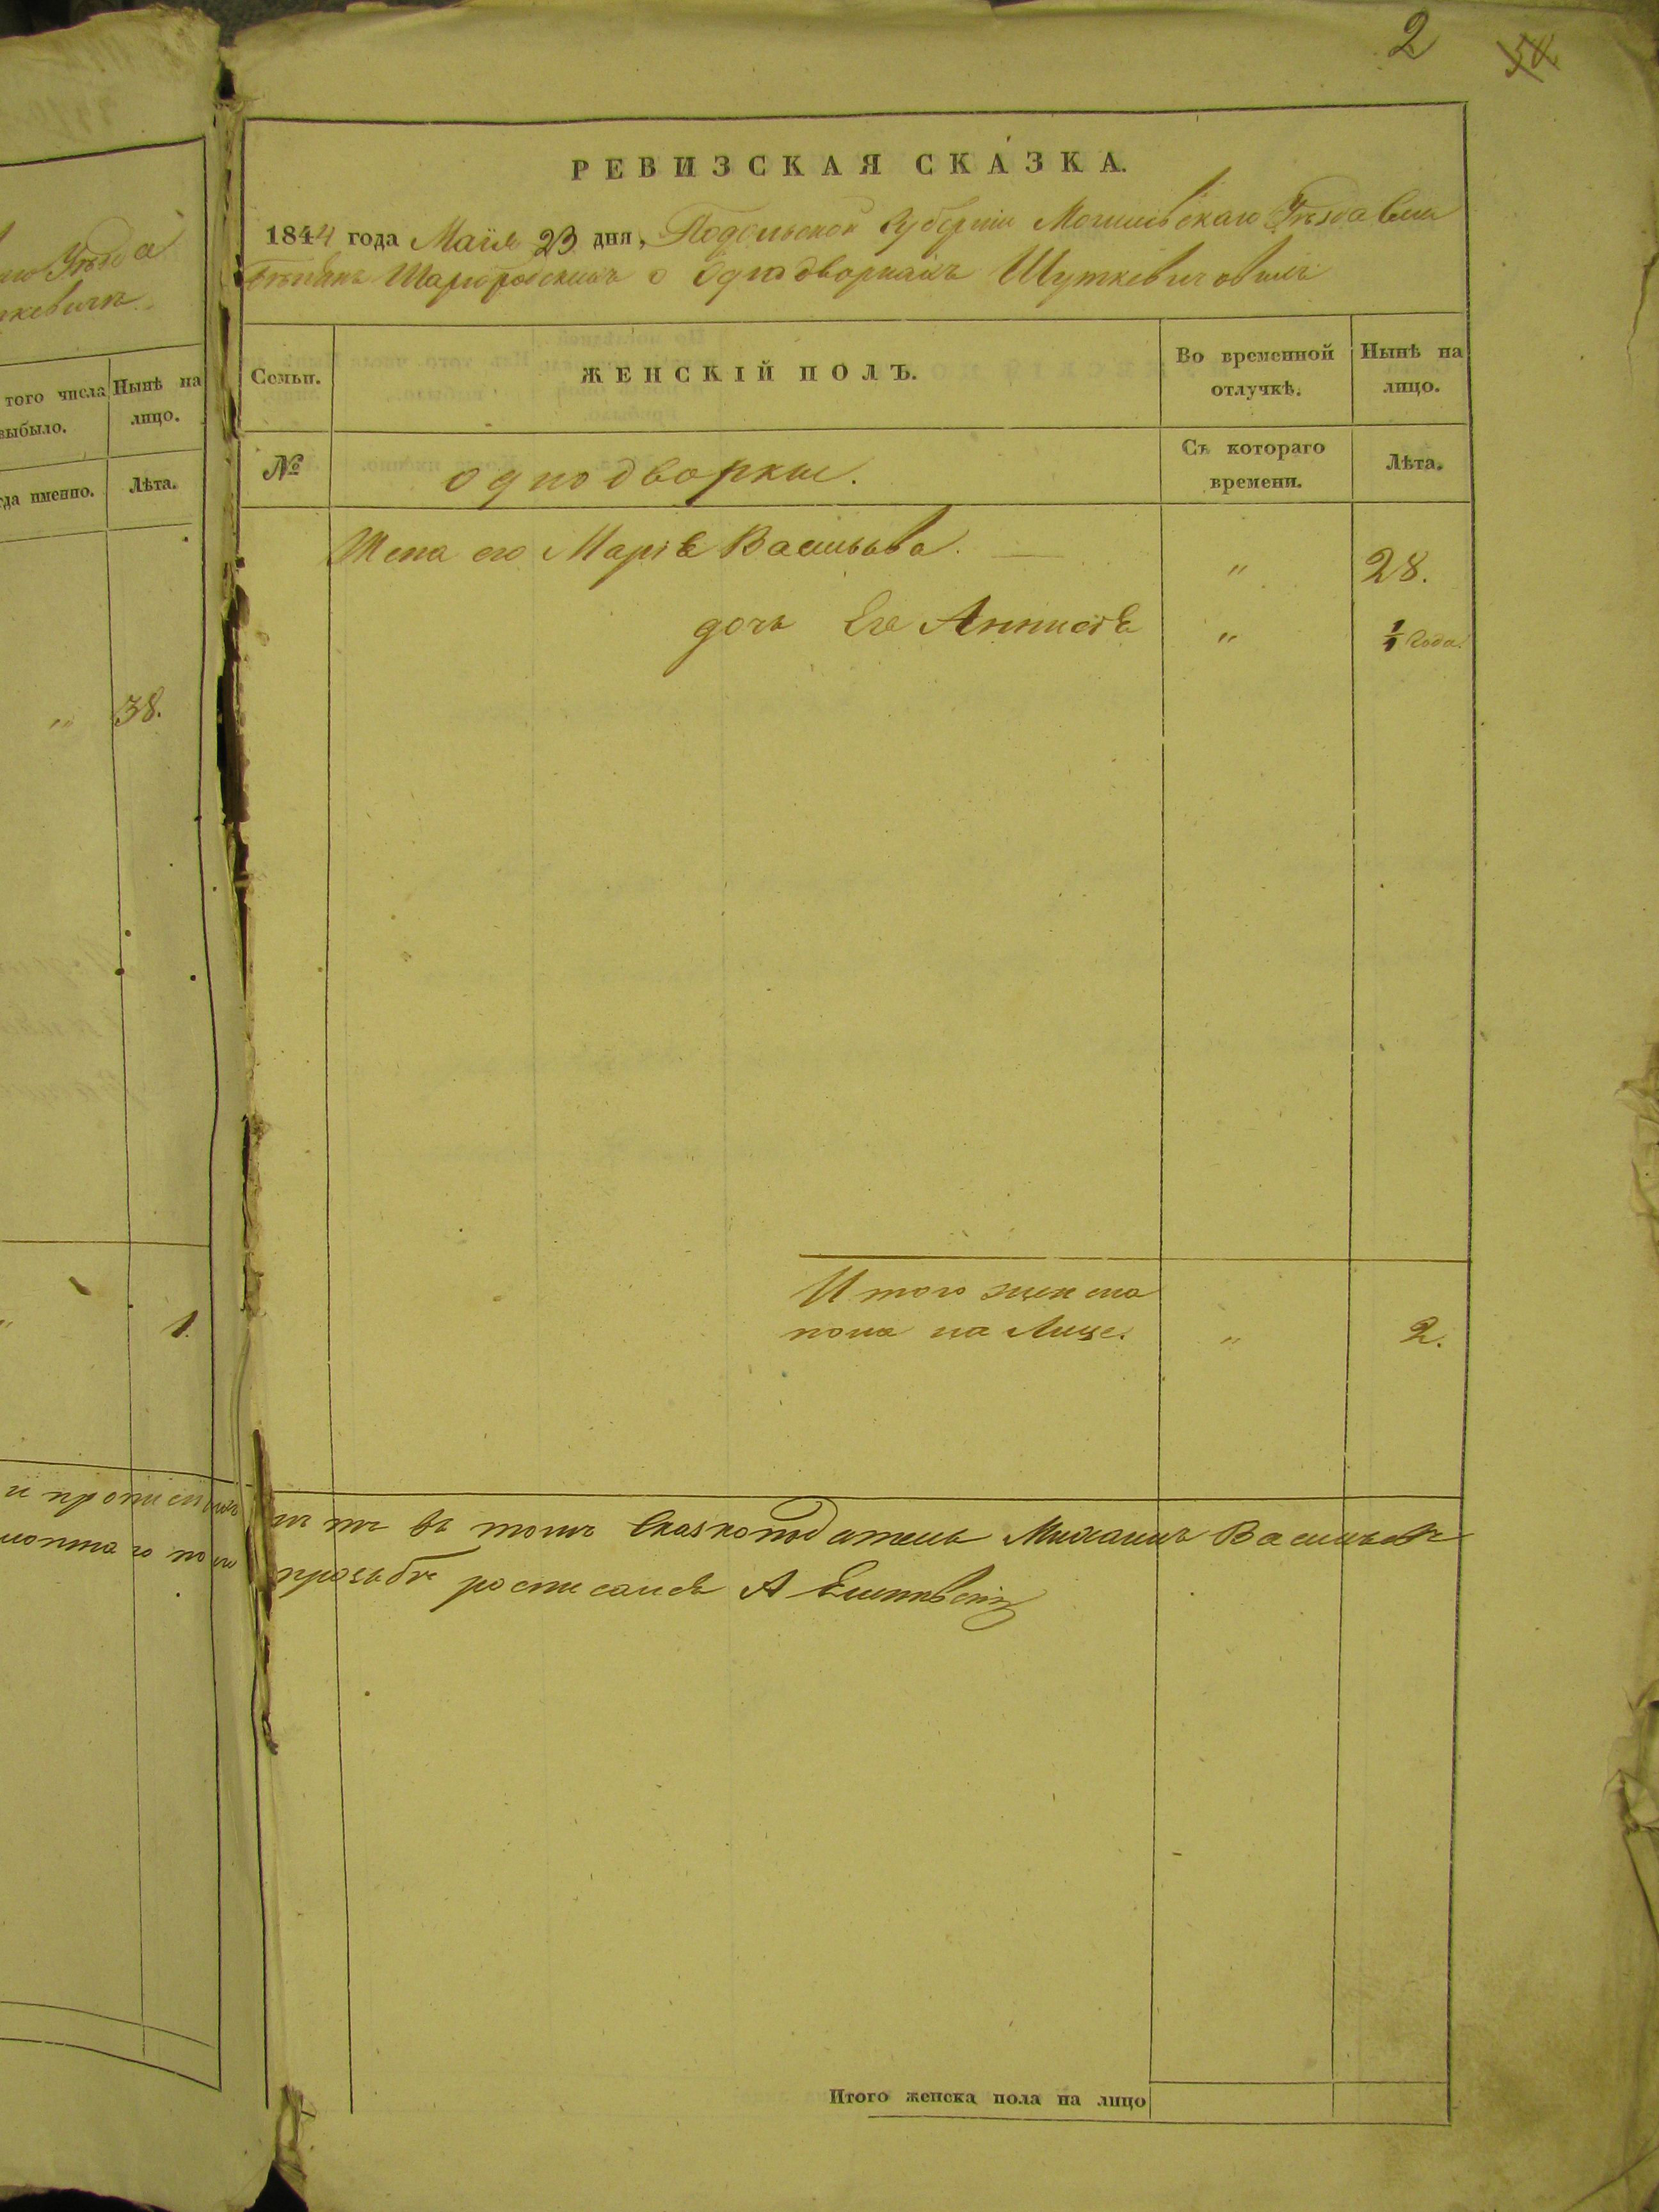 2
РЕВИЗСКАЯ СКАЗКА.
1844 года Маія 23 дня, Подольской Губерніи Могилевскаго Уѣзда
Шаргородскихъ о Однодворцахъ Шуткевичовыхъ
Семьи.
ЖЕНСКІЙ ПОЛЪ.
Во временной
отлучкѣ.
Нынѣ на
лицо.
№
однодворки.
Съ котораго
времени.
Лѣта.
Жена его Марія Васильева. — " 28.
дочь Его Аннися " года
Итого женска
пола на Лице. " 2.
въ томъ Сказкоподатель Михаилъ Васильевъ
прозьбѣ росписался А
Итого женска пола на лицо
Уѣзда
того числа
выбыло.
Нынѣ на
лицо.
именно.
Лѣта.
" 38.
" 1.